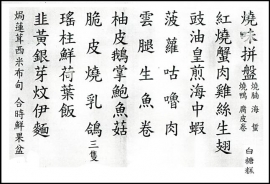 燒味拼盤 燒腩 海蜇 燒鴨 腐皮卷 白糖糕
紅燒蟹肉雞絲生翅
豉油皇煎海中蝦
菠蘿咕嚕肉
雲腿生魚卷
柚皮鵝掌鮑魚菇
脆皮燒乳鴿 三隻
瑤柱鮮荷葉飯
韭黃銀芽炆伊麵
焗蓮茸西米布甸 合時鮮果盆